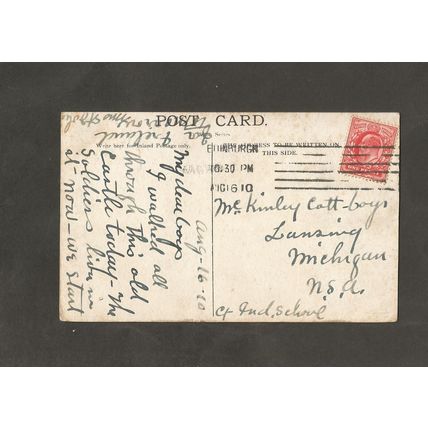 POST CARD.
Write here for Inland Postage only.
THE ADDRESS TO BE WRITTEN ON
THIS SIDE.
EDINBURGH
10.30 PM
AUG 16 10
Aug. 16. 10
My dear boys
I walked all
through this old
Castle today - The
Soldiers live in
it - now - we start
for
Ireland
McKinley Cott-boys
Lansing
Michigan
U.S.A.
c/o Ind. School